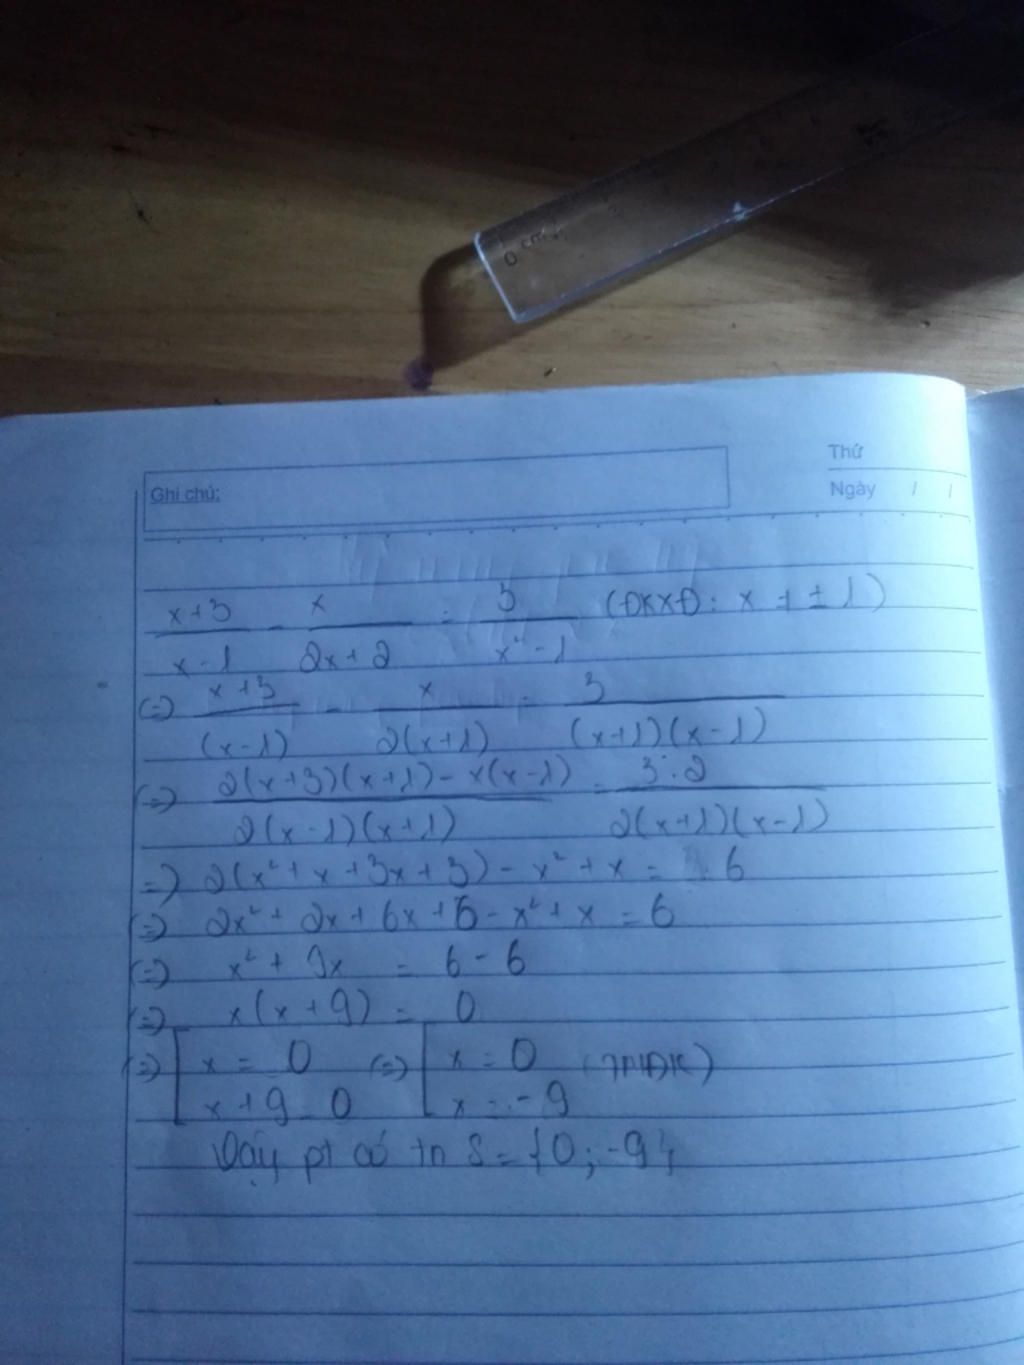 0 cm
Thứ
Ghi chú:
Ngày / /
x+3/x-1 - x/2x+2 = 3/x²-1 (ĐKXĐ: x ≠ ±1)
(=) x+3/(x-1) - x/2(x+1) = 3/(x+1)(x-1)
(=) 2(x+3)(x+1)-x(x-1)/2(x-1)(x+1) = 3.2/2(x+1)(x-1)
=) 2(x²+x+3x+3)-x²+x = 6
(=) 2x²+2x+6x+6-x²+x = 6
(=) x²+9x = 6-6
(=) x(x+9) = 0
(=) [x = 0 (=) [x = 0 (TMĐK)
x+9=0 x = -9
Vậy pt có tn S={0;-9}